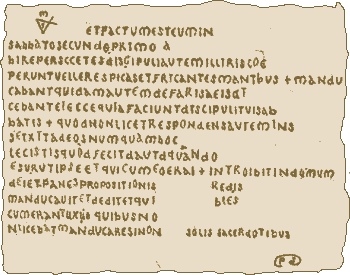 ETFACTUMESTEUMIN
SABBATOSECUNDOPRIMO A
BIREPERSCCETESDISGIPULIAUTEMILLIRISCOE
PERUNTUELLERESPICASETFRICANTESMANTBUS + MANDU
CABANTQUIDAMAUTEMDEFARISAEISDT
CEBANTEIECCEQUIAFACIUNTDISCIPULITUISAB
BATIS + QUODNONLICETRESPONDENSAUTEMINS
SETXTTADEOSNUMQUAMHOC
LECISTISQUODFECITDAUTDQUANDO
ESURUTIPSEETQUICUMEOERAT + INTROIBITINDOMUM
DEIETPANESPROPOSITIONIS REDIS
MANDUCAUITETDEDITETQUI BLES
CUMERANTUXUO QUIBUSNO
NLICEBATMANDUCARESINON SOLIS SACERDOTIBUS
PS